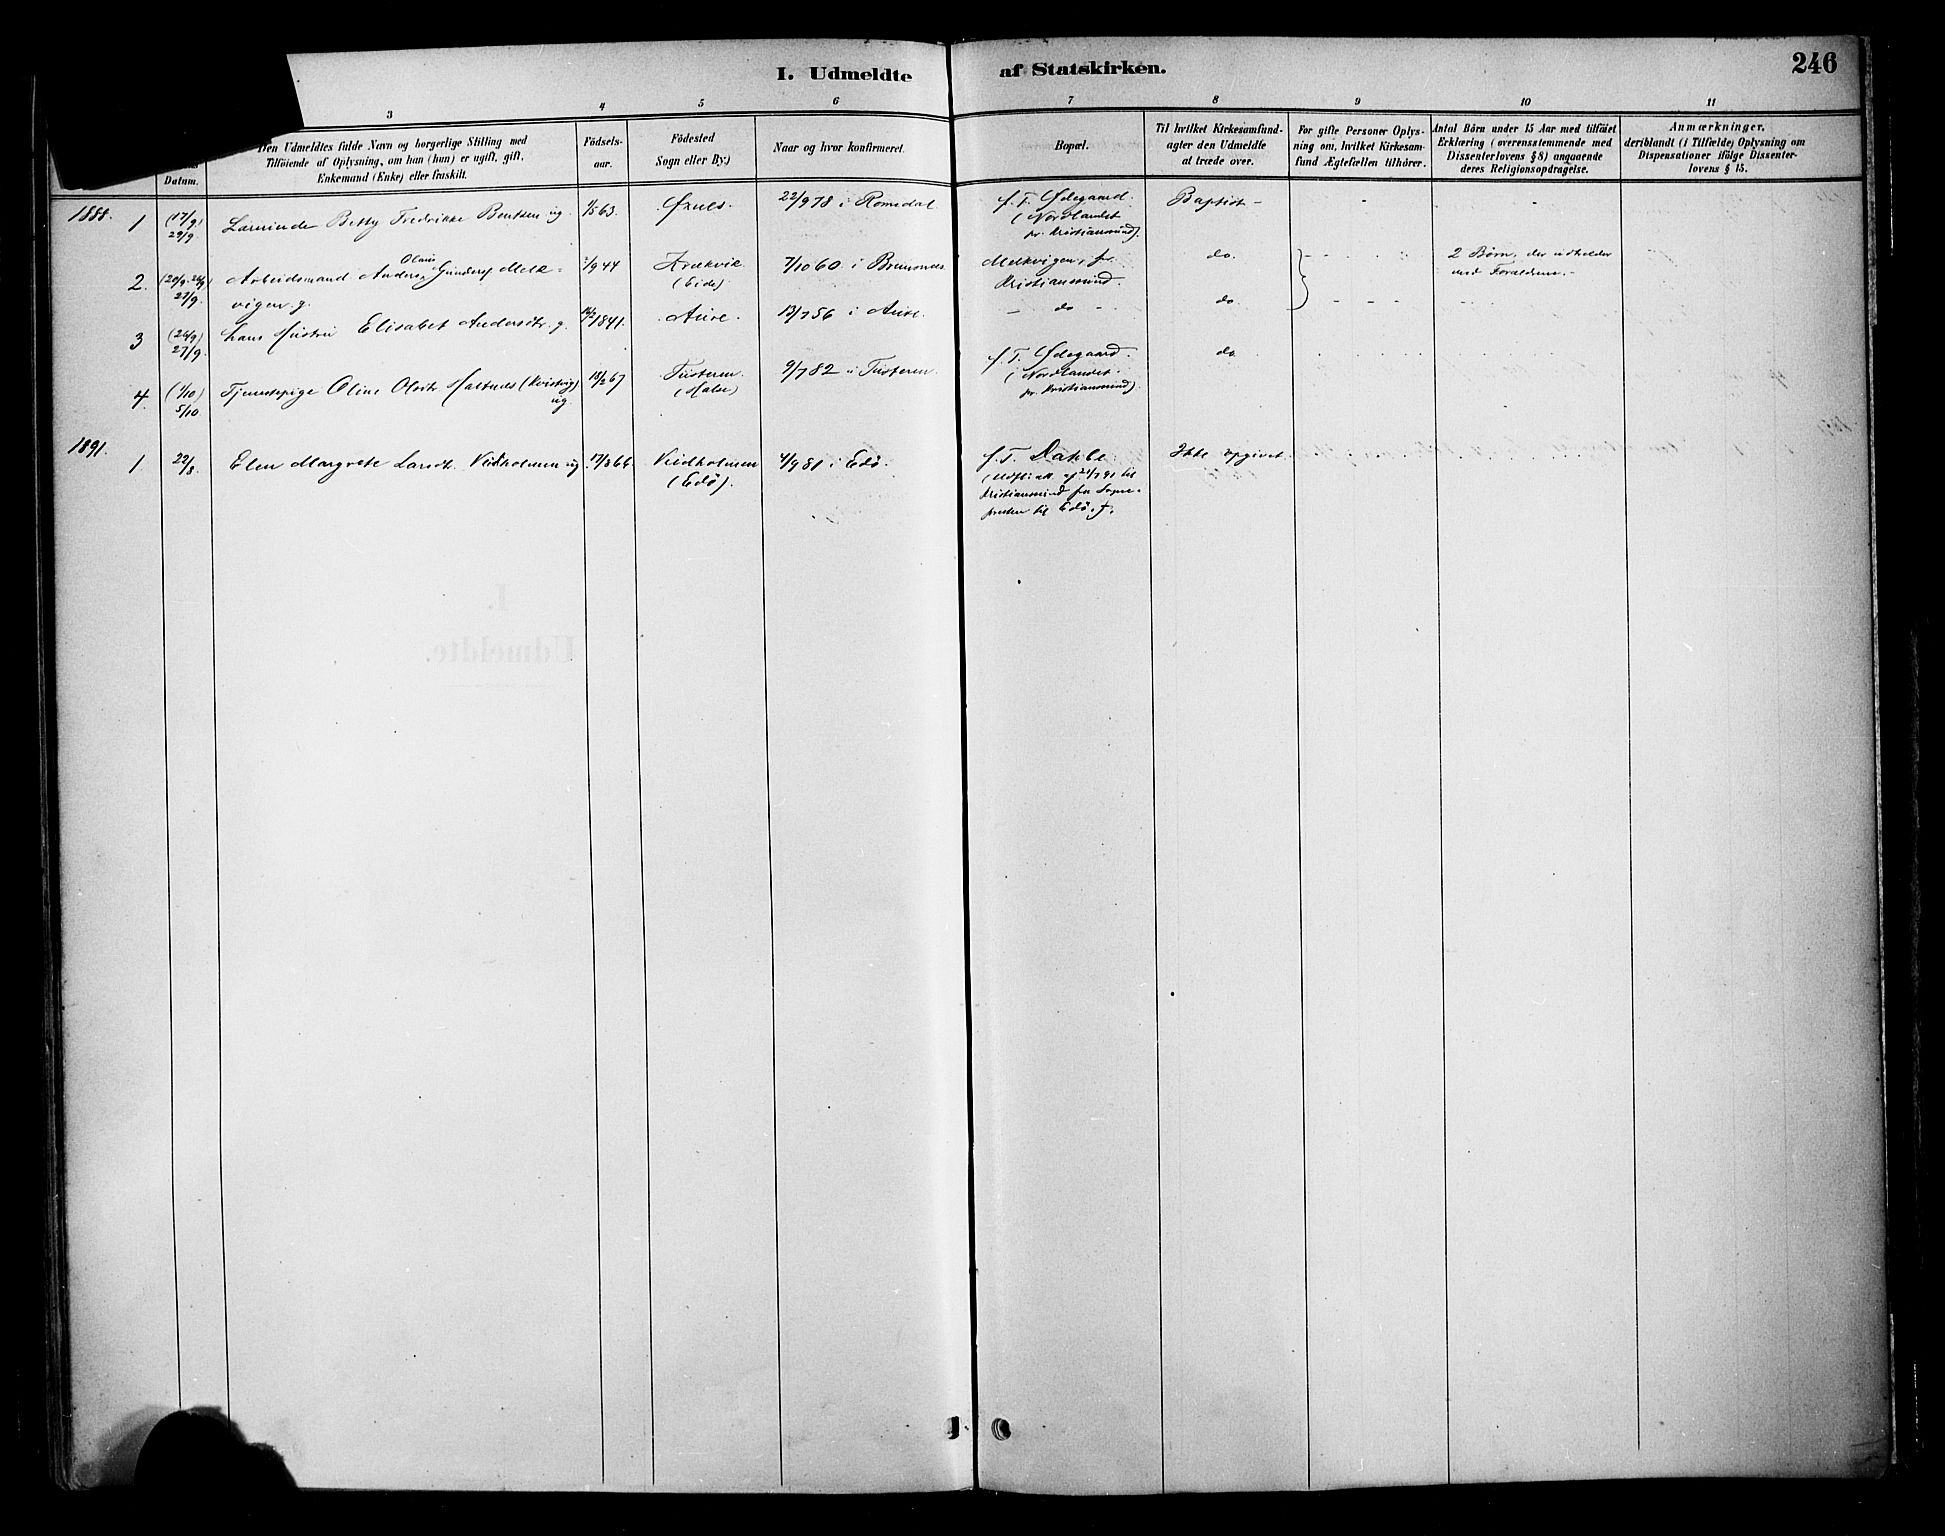 I. Udmeldte af Statskirken. 246
3 4 5 6 7 8 9 10 11
Datum.
Den Udmeldtes fulde Navn og borgerlige Stilling med
Tilføiende af Oplysning, om han (hun) er ugift, gift,
Enkemand (Enke) eller fraskilt.
Födsels-
aar.
Födested
Sogn eller By.)
Naar og hvor konfirmeret.
Bopæl.
Til hvilket Kirkesamfund-
agter den Udmeldte
at træde over.
For gifte Personer Oplys-
ning om, hvilket Kirkesam-
fund Ægtefællen tilhörer.
Antal Börn under 15 Aar med tilföiet
Erklæring (overensstemmende med
Dissenterlovens § 8) angaaende
deres Religionsopdragelse.
Anmærkninger,
deriblandt (i Tilfælde) Oplysning om
Dispensationer ifölge Dissenter-
lovens § 15.
1888.
1 (17/9) 29/9. Lærerinde Betty Fredrikke Bentzen ug. 1/5 63. 22/9 78 i Romsdal f. T. Ødegaard.
(Nordlandet
pr. Kristiansund).
Baptist -
2. 27/9. Arbeidsmand Anders Olaus Gunders. Melk-
vigen. g.
/9 44 (Eide) 7/10 60 i Bremsnes Melkvigen, pr.
Kristiansund.
do. 2 Börn, der
med Forældrene. -
3 (24/9) 27/9. hans Hustru Elisabet Andersdtr. g. 1841. Aure. 13/7 56 i Aure. - do - do.
4. (1/10) 5/10. Tjenestepige Oline Olsdtr (Kvisvig)
ug.
18/2 67 Tusteren.
(Halse)
9/7 82 i Tusteren. f. T. Ødegaard.
(Nordlandet.
pr. Kristiansund).
do.
1891.
1 22/8. Elen Margrete Larsdt. Veidholmen ug. 17/3 66. Veidholmen
(Edö).
4/9 81 i Edö. f. T. Dahle.
21/7 91 til
Kristiansund fra Sogne-
presten til Edö.
Ikke opgivet.
I.
Udmeldte.